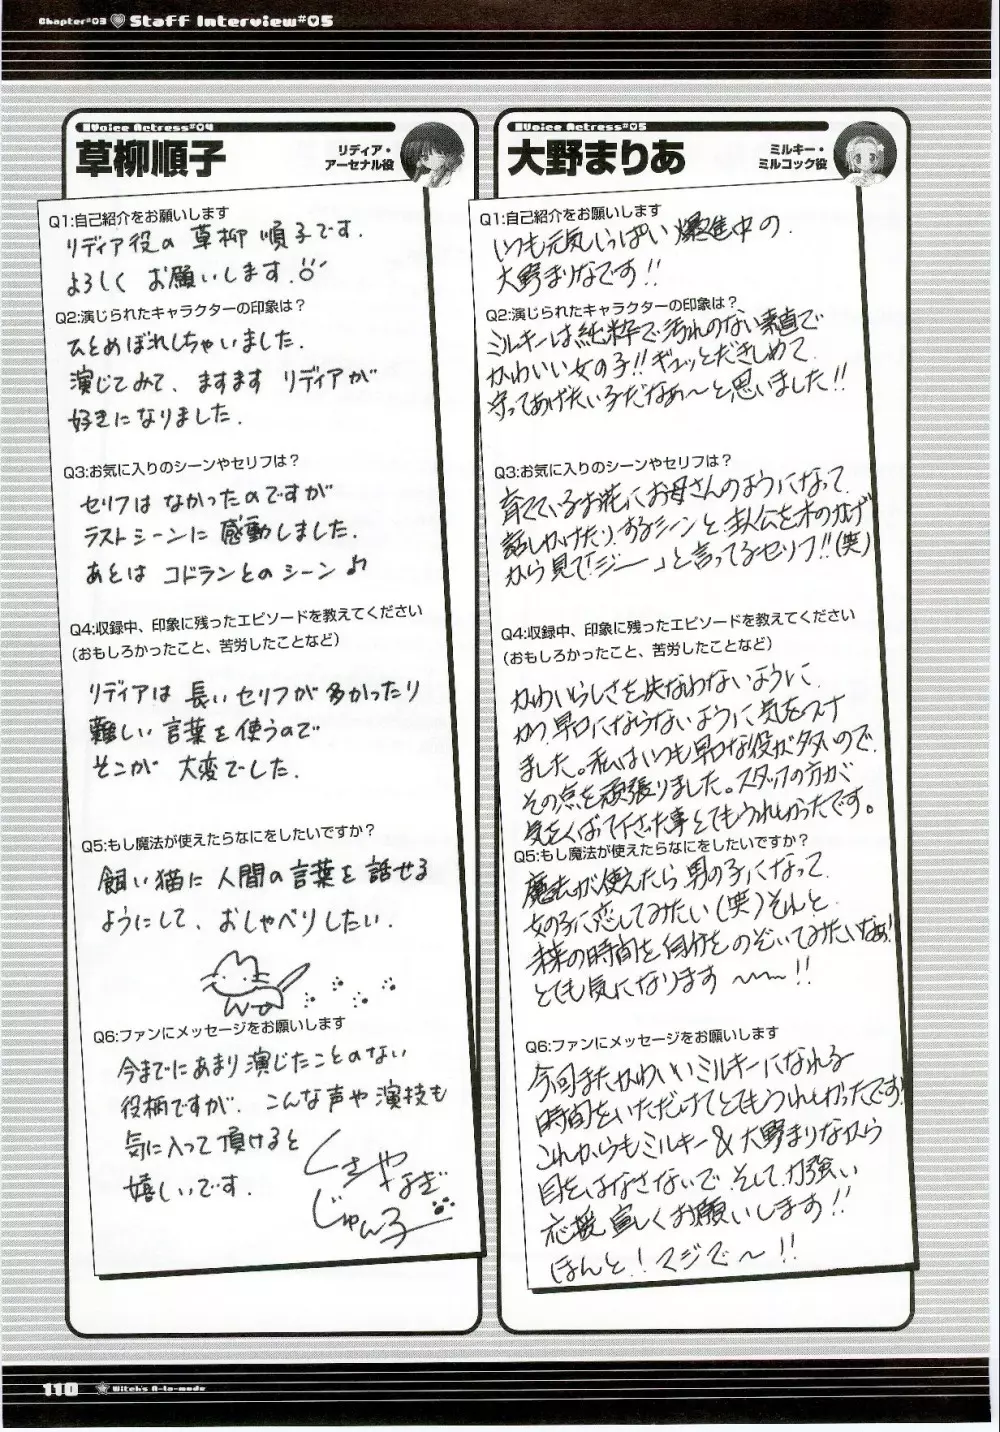 Chapter#03 Staff Interview#05
Voice Actress#04
草柳順子
リディア・
アーセナル役
Q1:自己紹介をお願いします
リディア役の 草柳 順子です.
よろしく お願いします.
Q2:演じられたキャラクターの印象は?
ひとめぼれしちゃいました.
演じてみて、ますます リディアが
好きになりました.
Q3:お気に入りのシーンやセリフは?
セリフは なかったのですが
ラストシーンに 感動しました.
あとは コドランとのシーン♪
Q4:収録中、印象に残ったエピソードを教えてください
(おもしろかったこと、苦労したことなど)
リディアは 長いセリフが 多かったり
難しい 言葉を 使うので
そこが 大変でした.
Q5:もし魔法が使えたらなにをしたいですか?
飼い猫に 人間の言葉を 話せる
ようにして、おしゃべりしたい.
Q6:ファンにメッセージをお願いします
今までにあまり演じたことのない
役柄ですが、こんな声や演技も
気に入って頂けると
嬉しいです.
くさやなぎ
じゅん子
Voice Actress#05
大野まりあ
ミルキー・
ミルコック役
Q1:自己紹介をお願いします
いつも元気いっぱい 爆進中の.
大野まりなです!!
Q2:演じられたキャラクターの印象は?
ミルキーは純粋で汚れのない素直で
かわいい女の子!!ギュッとだきしめて
守ってあげたい子だなぁ〜と思いました!!
Q3:お気に入りのシーンやセリフは?
育てているお花にお母さんのようになって
話しかけたりするシーンと、主人公を木のかげ
から見て「ジー」と言ってるセリフ!!(笑)
Q4:収録中、印象に残ったエピソードを教えてください
(おもしろかったこと、苦労したことなど)
かわいらしさを失なわないように、
かつ、早口にならないように気をつけ
ました。私はいつも早口な役が多いので、
その点を頑張りました。スタッフの方が
気をくばって下さった事とてもうれしかったです。
Q5:もし魔法が使えたらなにをしたいですか?
魔法が使えたら男の子になって、
女の子に恋してみたい(笑)それと
未来の時間を自分をのぞいてみたいなぁ!
とても気になります〜〜!!
Q6:ファンにメッセージをお願いします
今回またかわいいミルキーになれる
時間をいただけてとてもうれしかったです!
これからもミルキー&大野まりなから
目をはなさないで、そして力強い
応援宜しくお願いします!!
ほんと!マジで〜!!
110 Witch's A-la-mode